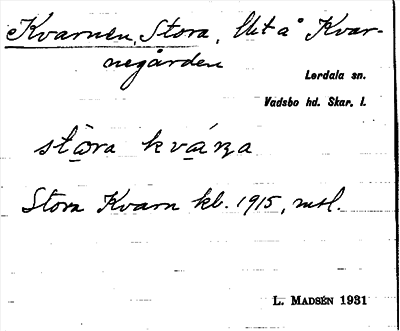 Kvarnen, Stora, Ut å Kvar-
negården
Lerdala sn.
Vadsbo hd. Skar. l.
stòra kvánа
Stora Kvarn kb. 1915, msl.
L. MADSÉN 1931